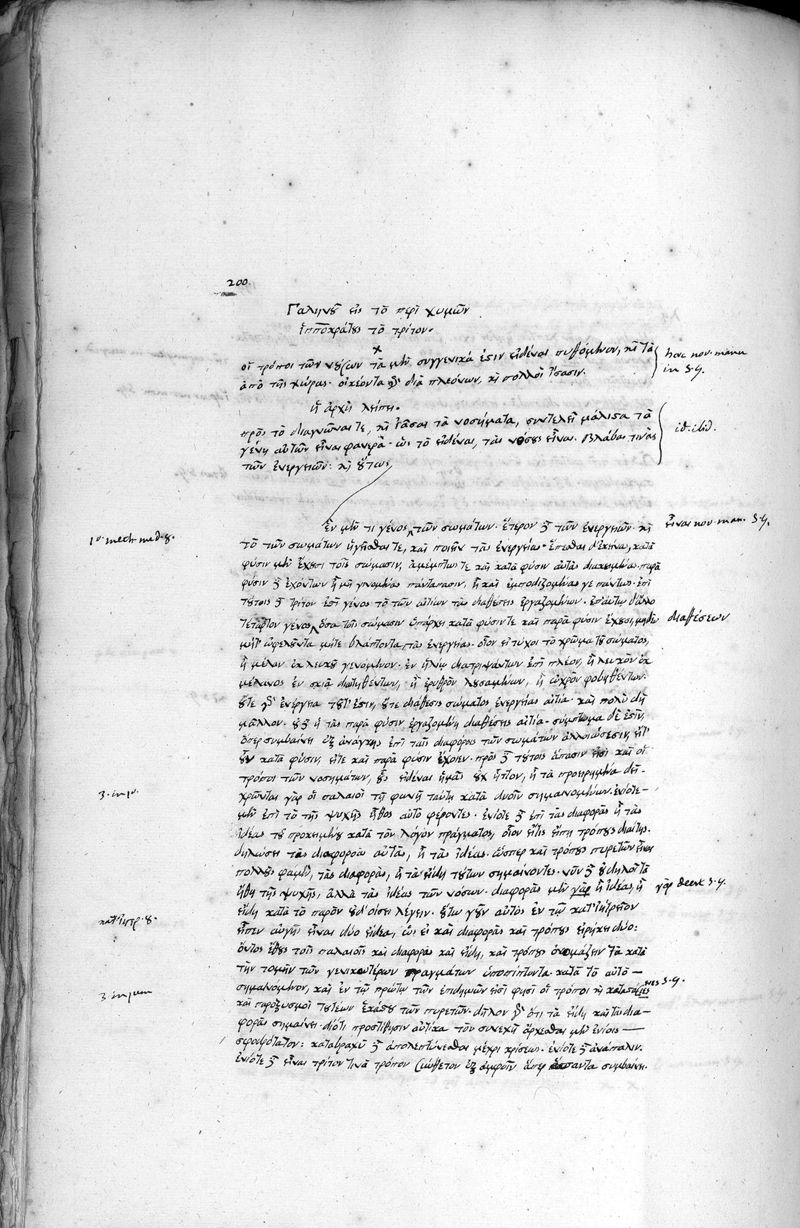 200
Γαληνοῦ εἰς τὸ περὶ χυμῶν
ἱπποκράτους τὸ τρίτον.
οἱ τρόποι τῶν νούσων τὰ μὲν συγγενικά ἐστιν εἰδέναι πυθόμενον, καὶ τὰ
ἀπὸ τῆς χώρης· οἰκέονται γὰρ διὰ πλεόνων, καὶ πολλοὶ ἴσασιν.
hæc nov. manu
in 5.9.
ἡ ἀρχὴ λείπει.
πρὸς τὸ διαγνῶναί τε, καὶ ἰᾶσαι τὰ νοσήματα, συντελεῖ μάλιστα τὰ
γένη αὐτῶν εἶναι φανερὰ· ὡς τὸ εἰδέναι, τὰς νόσους εἶναι βλάβας τινὰς
τῶν ἐνεργειῶν: καὶ οὕτως
id. ibid.
ἓν μέν τι γένος τῶν σωμάτων· ἕτερον δὲ τῶν ἐνεργειῶν· καὶ
εἶναι nov. man. 5.9.
1º. meth. med. 8.
τὸ τῶν σωμάτων ἡγεῖσθαί τε, καὶ ποιεῖν τὰς ἐνεργείας· ἕπεσθαι δ' ἐκείνας, κατὰ
φύσιν μὲν ἔχουσι τοῖς σώμασιν, ἀμέμπτως τε καὶ κατὰ φύσιν αὐτὰς διακειμένας· παρὰ
φύσιν δὲ ἐχόντων ἢ μὴ γινομένας παντάπασιν, ἢ καὶ ἐμποδιζομένας γε πάντως· ἐπὶ
τούτοις δὲ τρίτον ἐστὶ γένος τὸ τῶν αἰτίων τὰς διαθέσεις ἐργαζομένων· ἐπ' αὐτῷ δ' ἄλλο
τέταρτον γένος ὅσα τοῖς σώμασιν ὑπάρχει κατὰ φύσιν τε καὶ παρὰ φύσιν ἔχουσι, μηδὲν
διαθέσεων
μήτ' ὠφελοῦντα μήτε βλάπτοντα τὰς ἐνεργείας· οἷον εἰ τύχοι τὸ χρῶμα τοῦ σώματος,
ἢ μέλαν ἐκ λευκοῦ γενόμενον· ἐν ἡλίῳ διατριψάντων ἐπὶ πλέον, ἢ λευκὸν ἐκ
μέλανος ἐν σκιᾷ διαιτηθέντων, ἢ ἐρυθρὸν λουσαμένων, ἢ ὠχρὸν φοβηθέντων·
οὔτε γὰρ ἐνέργεια τοῦτ' ἔστιν, οὔτε διάθεσις σώματος ἐνεργείας αἰτία· καὶ πολὺ δὴ
μᾶλλον· οὐδὲ ἡ τὰς παρὰ φύσιν ἐργαζομένη διαθέσεις αἰτία· σύμπτωμα δέ ἐστιν,
ὅπερ συμβαίνει ἐξ ἀνάγκης ἐπὶ ταῖς διαφόροις τῶν σωμάτων ἀλλοιώσεσιν, εἴτ'
οὖν κατὰ φύσιν, εἴτε καὶ παρὰ φύσιν ἔχοιεν· πρὸς δὲ τούτοις ἅπασιν εἰσὶ καὶ οἱ
τρόποι τῶν νοσημάτων, οὓς εἰδέναι ἡμᾶς οὐχ ἧττον, ἢ τὰ προειρημένα δεῖ·
3. in pr.
χρῶνται γὰρ οἱ παλαιοὶ τῇ φωνῇ ταύτῃ κατὰ δυοῖν σημαινομένων· ἐνίοτε
μὲν ἐπὶ τὸ τῆς ψυχῆς ἦθος αὐτὸ φέροντες· ἐνίοτε δὲ ἐπὶ τὰς διαφορὰς ἢ τὰς
ἰδέας τοῦ προκειμένου κατὰ τὸν λόγον πράγματος, οἷον εἴ τις εἴπῃ τρόπους διαίτης,
δηλώσει τὰς διαφορὰς αὐτῆς, ἢ τὰς ἰδέας· ὥσπερ καὶ τρόπους πυρετῶν εἶναι
πολλοὺς φαμὲν, τὰς διαφορὰς, ἢ τὰ εἴδη τούτων σημαίνοντες· νῦν δὲ οὐ δηλοῖ τὰ
ἤθη τῆς ψυχῆς, ἀλλὰ τὰς ἰδέας τῶν νόσων· διαφορὰς μὲν γὰρ ἢ ἰδέας, ἢ
γὰρ deest 5.9.
εἴδη κατὰ τὸ παρὸν οὐδ' οἴσει λέγειν· οὕτω γοῦν αὐτὸς ἐν τῷ κατ' ἰητρεῖον
κατ' ἰητρ. 8.
εἶπεν αὐγῆς εἶναι δύο εἴδεα, ὡς εἰ καὶ διαφορὰς καὶ τρόπους εἰρήκει δύο:
ὄντος ἔθους τοῖς παλαιοῖς καὶ διαφορὰς καὶ εἴδη, καὶ τρόπους ὀνομάζειν τὰ κατὰ
τὴν τομὴν τῶν γενικωτέρων πραγμάτων ὑποπίπτοντα κατὰ τὸ αὐτὸ
σημαινόμενον, καὶ ἐν τῷ πρώτῳ τῶν ἐπιδημιῶν εἰσὶ φησὶ οἱ τρόποι καὶ καταστάσιες
5.9.
καὶ παροξυσμοὶ τουτέων ἑκάστου τῶν πυρετῶν· δῆλον γὰρ ὅτι τὰ εἴδη καὶ τὰς δια-
φορὰς σημαίνει· διότι προστίθησιν αὐτίκα τὸν συνεχῆ ἄρχεσθαι μὲν ἐνίοις
σφοδρότατον: καταβραχὺ δὲ ἀπολεπτύνεσθαι μέχρι κρίσεως· ἐνίοτε δὲ ἀνάπαλιν·
ἐνίοτε δὲ εἶναι τρίτον τινὰ τρόπον σύνθετον ἐξ ἀμφοῖν ἅπερ ἅπαντα συμβαίνει.